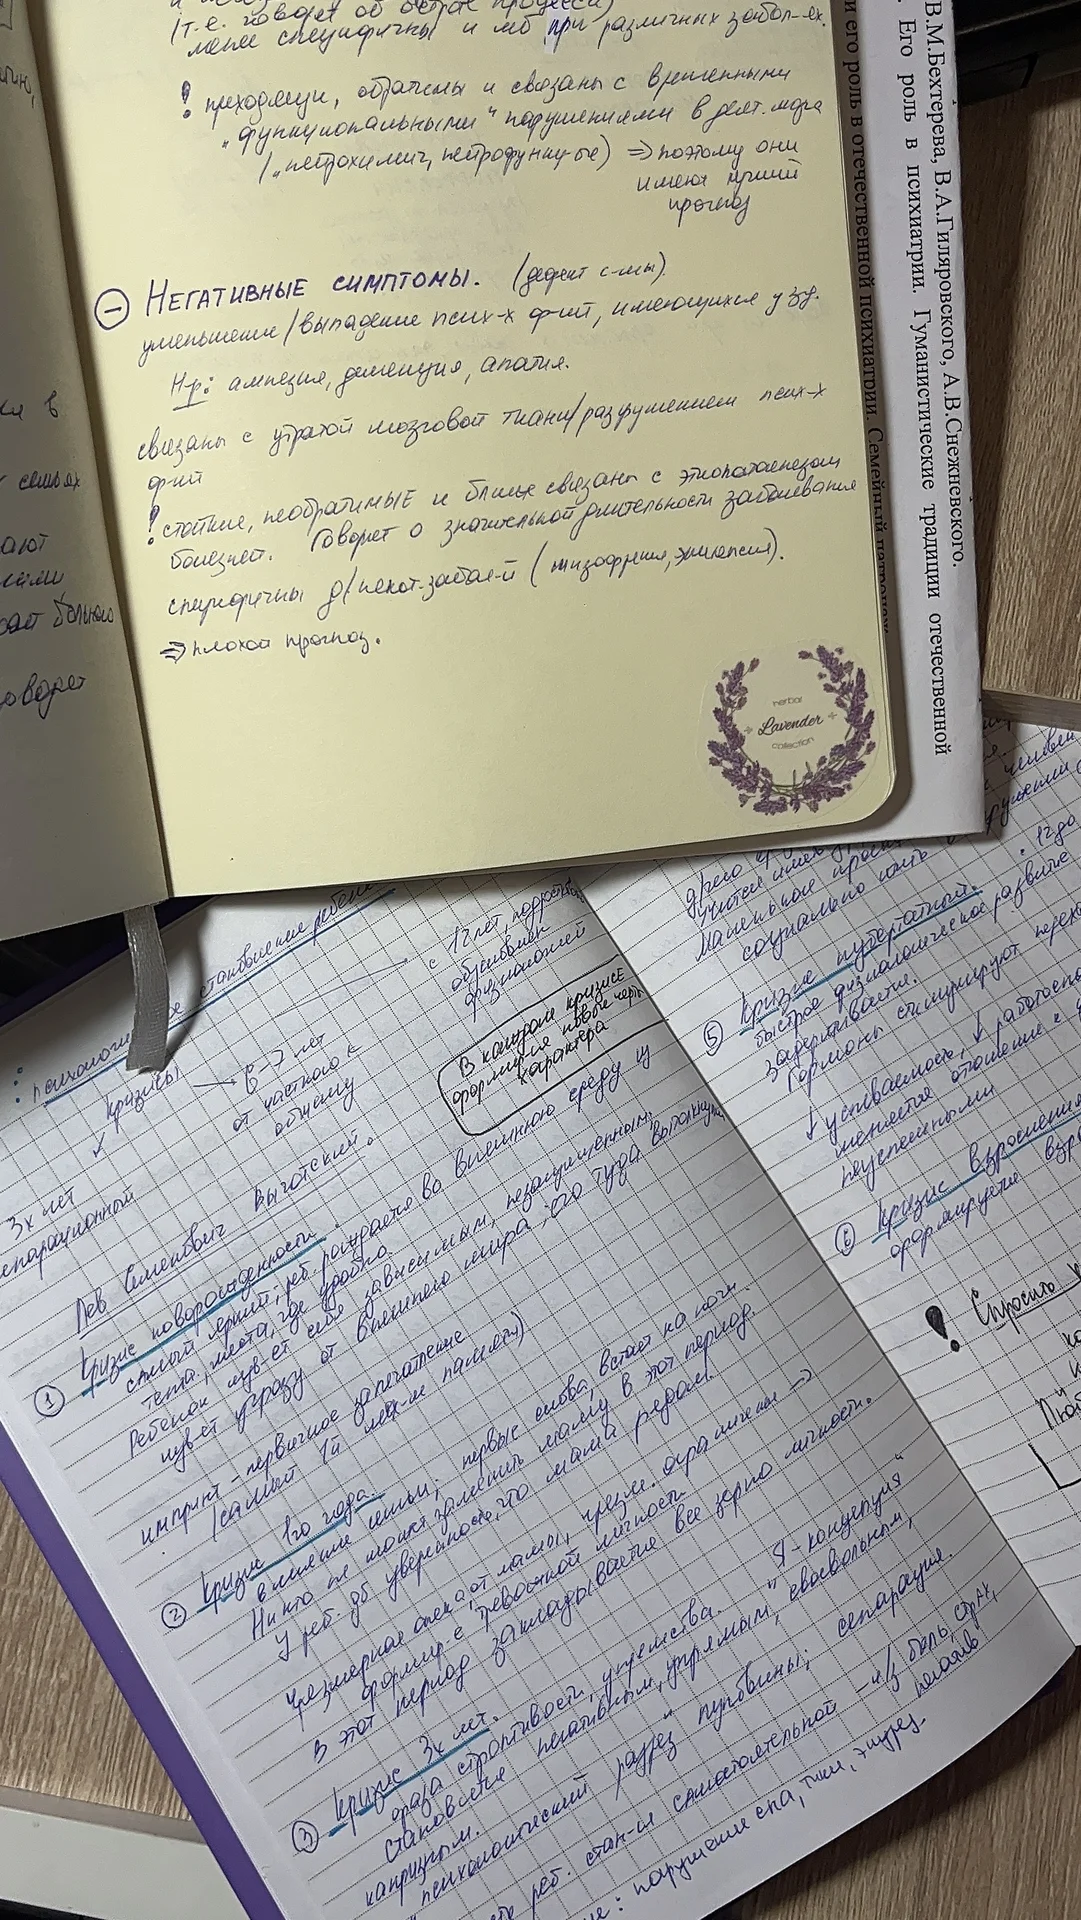 (т.е. говорят об остроте процесса)
менее специфичны и мб при различных забол-ях.
! преходящи, обратимы и связаны с временными
„функциональными" нарушениями в деят. мозга
(„нейрохимич, нейрофункц-ые) ⇒ поэтому они
имеют лучший
прогноз
⊖ НЕГАТИВНЫЕ СИМПТОМЫ. (дефект с-мы).
уменьшение/выпадение псих-х ф-ий, имеющихся у зд.
Нр: амнезия, деменция, апатия.
связаны с утратой мозговой ткани/разрушением псих-х
ф-ий
! стойкие, необратимые и ближе связаны с этиопатогенезом
болезней. Говорят о значительной длительности заболевания
специфичны д/некот. забол-й (шизофрения, эпилепсия).
⇒ плохой прогноз.
herbal
Lavender
collection
В.М.Бехтерева, В.А.Гиляровского, А.В.Снежневского.
Его роль в психиатрии. Гуманистические традиции отечественной
и его роль в отечественной психиатрии. Семейный патронаж
ся в
семьях
ают
больного
говорят
становление
с 12 лет, подростк
объективн
физиологией
кризисы → 6-7 лет
от частного к
общему
В каждом кризисе
формир-ся новые черты
характера
3х лет
сепарационный
Лев Семенович Выготский.
① Кризис новорожденности.
самый ранний; реб. рождается во внешнюю среду из
тепла, места, где удобно.
Ребенок чув-ет себя зависимым, незащищенным,
чув-ет угрозу от внешнего мира, его туда вытолкнули
импринт - первичное запечатление
(самый 1й мех-м памяти)
② Кризис 1го года.
в жизни семьи; первые слова, встает на ноги
Никто не может заменить маму в этот период.
У реб. дб уверенность, что мама рядом.
Чрезмерная опека от мамы, чрезм. ограничения ⇒
формир-е тревожной личности
В этот период закладывается все зерно личности.
③ Кризис 3х лет.
фаза строптивости, упрямства. „Я-концепция"
становится негативным, упрямым, своевольным,
капризным.
„психологический разрез" пуповины; сепарация.
реб. стан-ся самостоятельной - ч/з боль, страх,
печаль
: нарушение сна, тики, энурез.
социально
⑤ Кризис пубертатный. • 12 до
быстрое физиологическое развитие
Гормоны стимулируют
↓ успеваемость, ↓ работоспос
меняется отношение с
неуспешными
⑥ Кризис взросления
формируется
! Спросить